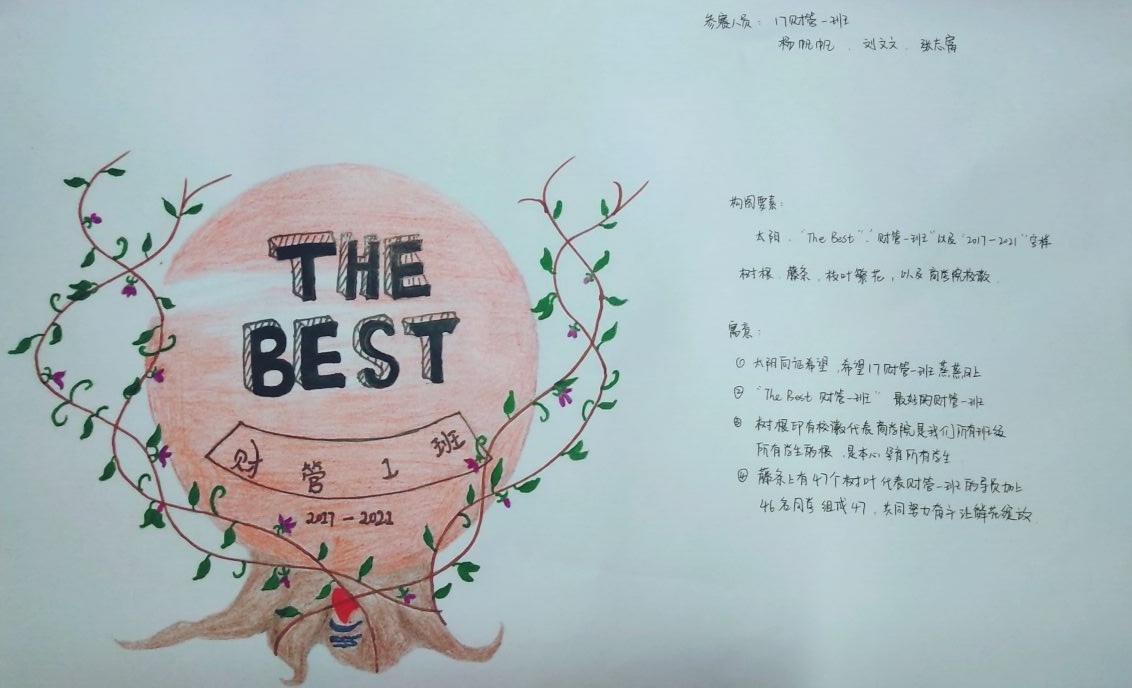 参展人员：17财管一班
杨帆帆、刘文文、张志富
THE
BEST
财管1班
2017-2021
构图要素：
太阳、"The Best"."财管一班"以及"2017-2021"字样
树根、藤条、枝叶繁花，以及商学院校徽.
寓意：
① 太阳向征希望，希望17财管一班蒸蒸日上
② "The Best 财管一班" 最好的财管一班
③ 树根印有校徽代表商学院是我们所有班级
所有学生的根，是本心 孕育所有学生
④ 藤条上有47个树叶代表财管一班的导员加上
46名同学组成47，共同努力奋斗让鲜花绽放.